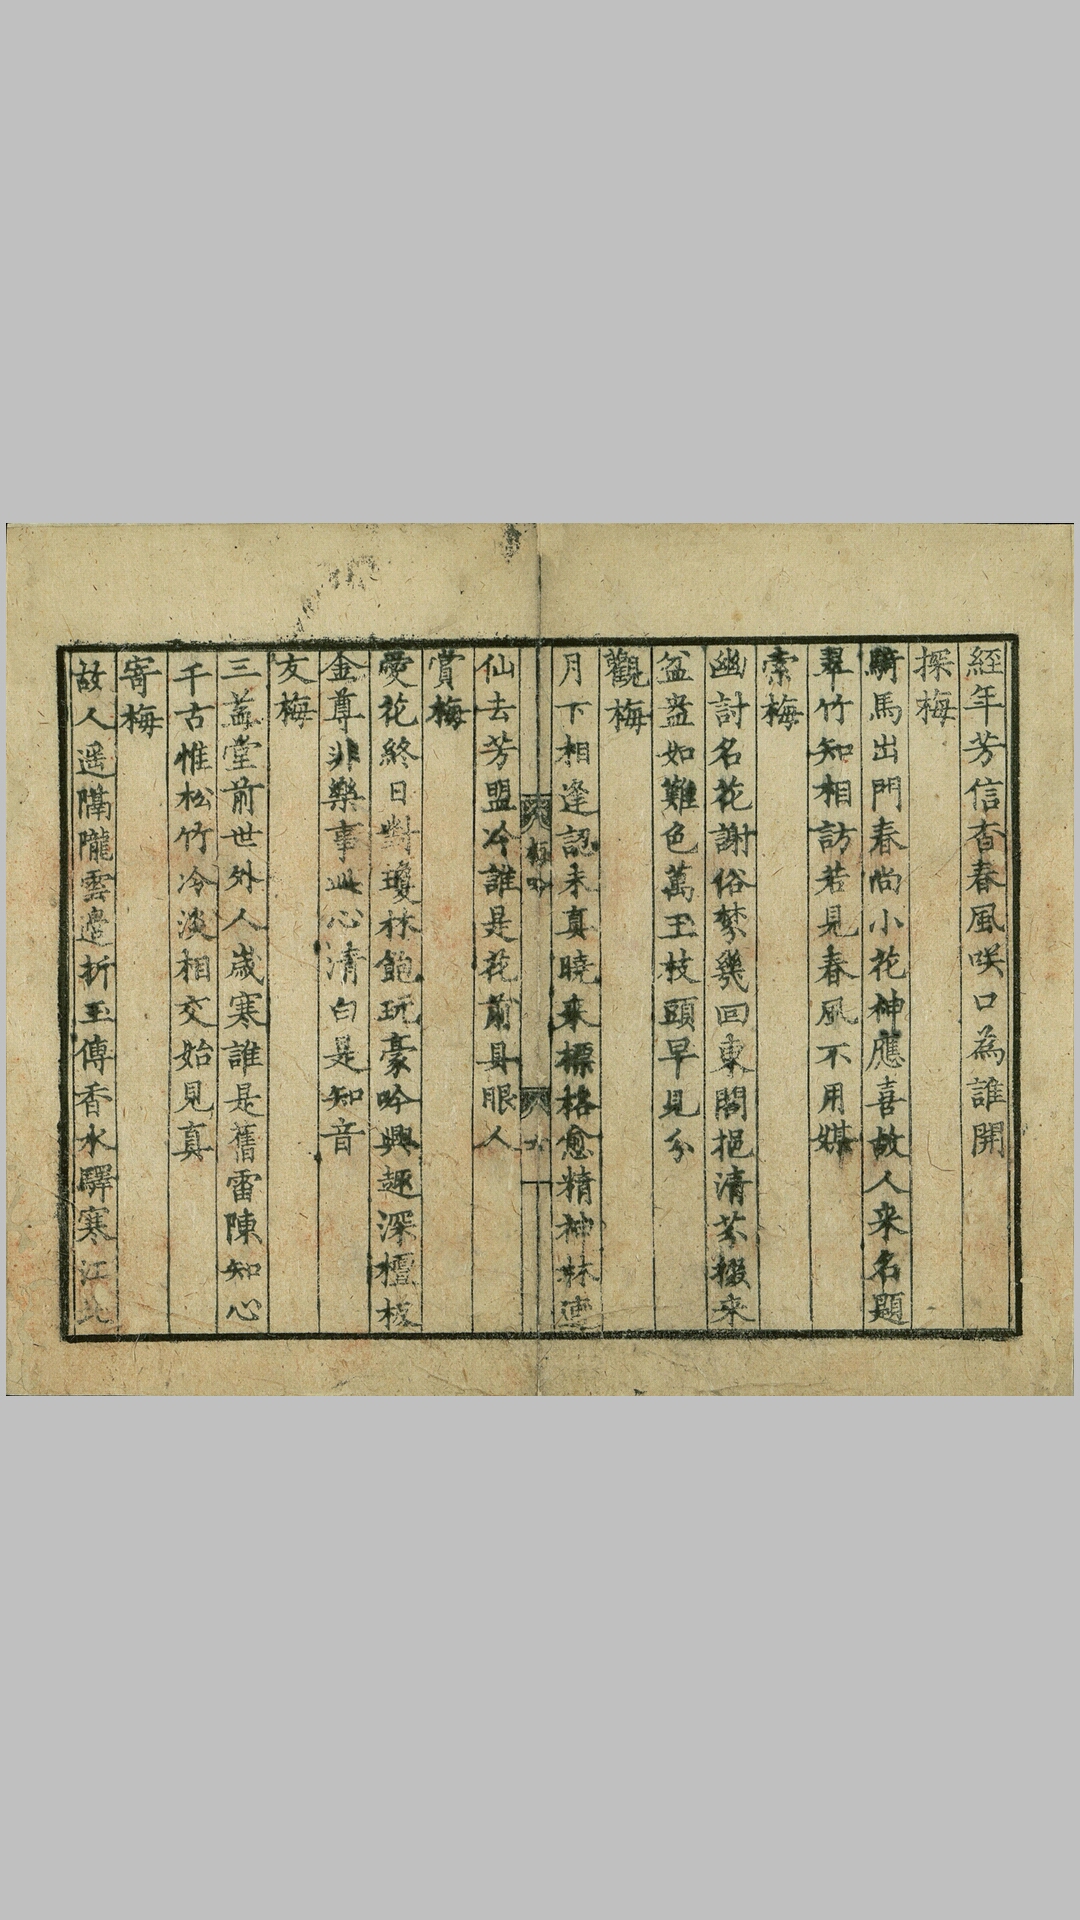 經年芳信杳春風咲口為誰開
探梅
騎馬出門春尚小花神應喜故人来名題
翠竹知相訪若見春風不用媒
索梅
幽討名花謝俗梦幾回東閣挹清芬掇来
盆盎如難色萬玉枝頭早見分
觀梅
月下相逢認未真曉来標格愈精神林逋
仙去芳盟冷誰是花前具眼人
賞梅
愛花終日對瓊林飽玩豪吟興趣深檀板
金尊非樂事此心清白是知音
友梅
三益堂前世外人歳寒誰是舊雷陳知心
千古惟松竹冷淡相交始見真
寄梅
故人遥隔隴雲邊折玉傳香水驛寒江北